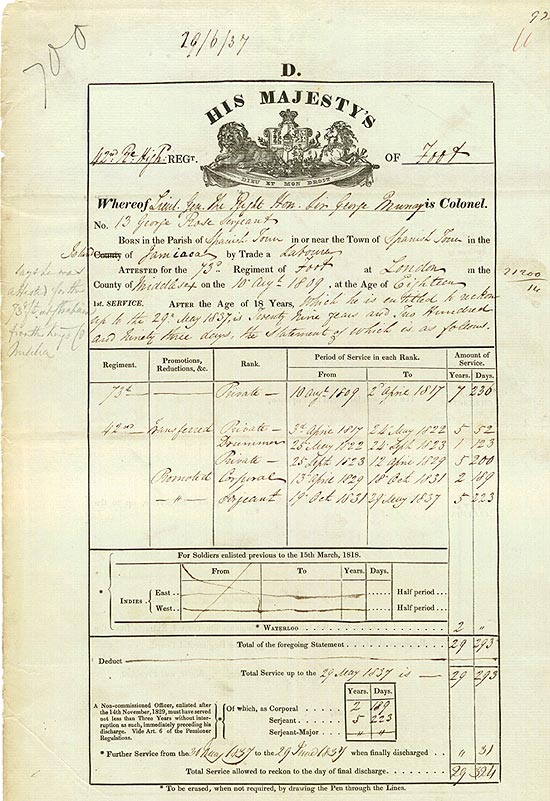 92
700
29/6/37
D.
HIS MAJESTY'S
42nd Rl. High. REGT. OF Foot
DIEU ET MON DROIT
Whereof Lieut. Gen. the Right Hon. Sir George Murray is Colonel.
No. 13 George Rose Serjeant
BORN in the Parish of Spanish Town in or near the Town of Spanish Town in the
Island
County of Jamiaca by Trade a Labourer
ATTESTED for the 73d Regiment of Foot at London in the
County of Middlesex on the 10 Augt. 1809, at the Age of Eighteen
says he was
attested for the
73rd
1st. SERVICE. AFTER the Age of 18 Years, which he is entitled to reckon
up to the 29th May 1837, is Twenty Nine years and Two Hundred
and Ninety three days, the Statement of which is as follows.
21200
14
Regiment. Promotions, Reductions, &c. Rank. Period of Service in each Rank. Amount of Service.
From To Years. Days.
73d — Private — 10 Augt. 1809 2d April 1817 7 236
42nd Transferred Private — 3d April 1817 24 May 1822 5 52
Drummer 25 May 1822 24 Sept. 1823 1 123
Private — 25 Sept. 1823 12 April 1829 5 200
Promoted Corporal 13 April 1829 18 Oct 1831 2 189
— " — Serjeant 19 Oct 1831 29 May 1837 5 223
For Soldiers enlisted previous to the 15th March, 1818.
From To Years. Days.
* INDIES { East .. Half period ...
West .. Half period ...
* WATERLOO 2 "
Total of the foregoing Statement 29 293
Deduct
Total Service up to the 29 May 1837 is — 29 293
A Non-commissioned Officer, enlisted after
the 14th November, 1829, must have served
not less than Three Years without inter-
ruption as such, immediately preceding his
discharge. Vide Art. 6 of the Pensioner
Regulations.
Years. Days.
* Of which, as Corporal 2 189
Serjeant 5 223
Serjeant-Major " "
* Further Service from the 30 May 1837 to the 29 June 1837 when finally discharged " 31
Total Service allowed to reckon to the day of final discharge 29 324
* To be erased, when not required, by drawing the Pen through the Lines.